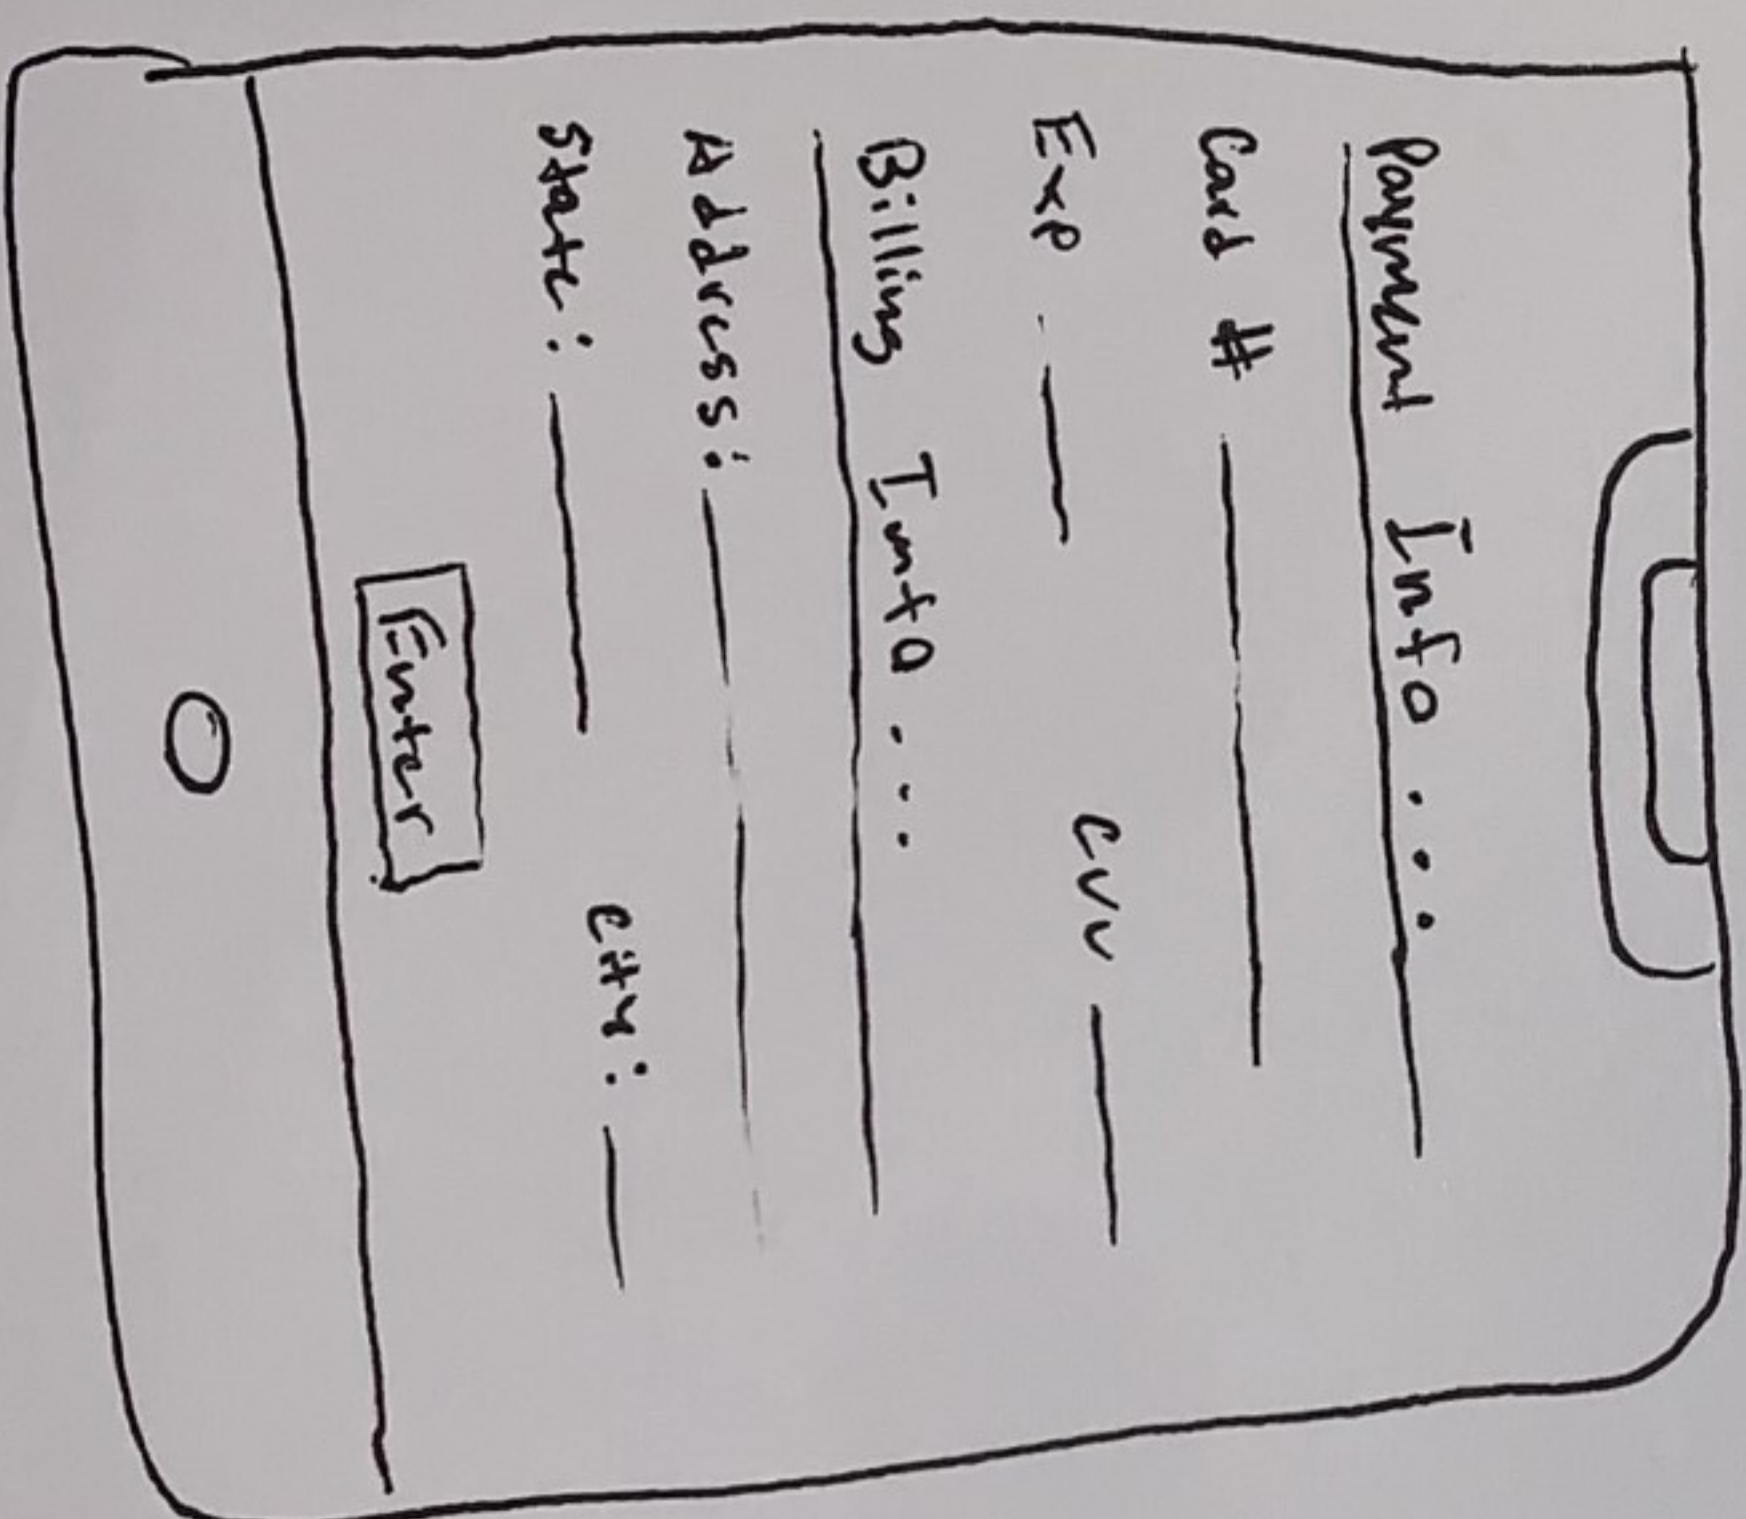 Payment Info...
Card #
Exp CVV
Billing Info...
Address:
State: City:
Enter